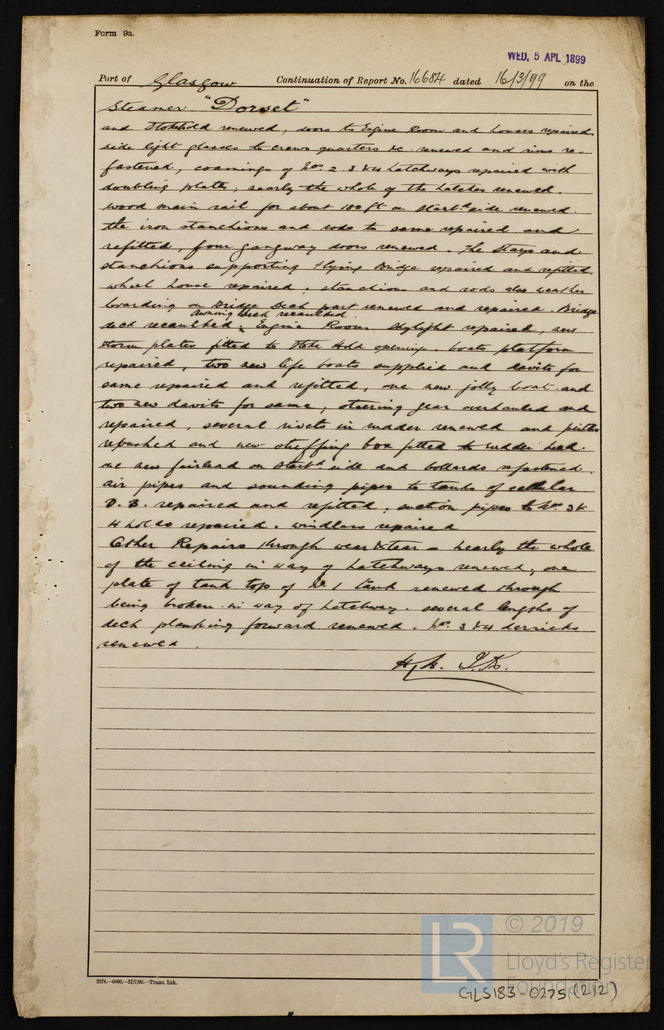 Form 9a.
WED. 5 APL 1899
Port of Glasgow Continuation of Report No. 16684 dated 16/3/99 on the
Steamer "Dorset"
and Stokehold renewed, doors to Engine Room and houses repaired
side light glasses to crews quarters &c renewed and rims re-
fastened, coamings of Nos 2 3 & 4 hatchways repaired with
doubling plates, nearly the whole of the hatches renewed.
wood main rail for about 180 ft on Starbd side renewed
the iron stanchions and rods to same repaired and
refitted, four gangway doors renewed. The Stays and
stanchions supporting Flying Bridge repaired and refitted
wheel house repaired, stanchions and rods also weather
boarding on Bridge Deck part renewed and repaired. Bridge
Awning Deck recaulked
deck recaulked. Engine Room Skylight repaired, new
storm plates fitted to Stoke Hold openings boats platform
repaired, two new life boats supplied and davits for
same repaired and refitted, one new jolly boat and
two new davits for same, steering gear overhauled and
repaired, several rivets in rudder renewed and pintles
rebushed and new stuffing box fitted to rudder head.
one new fairlead on Starbd side and bollards refastened.
air pipes and sounding pipes to tanks of cellular
D. B. repaired and refitted, suction pipes to Nos 3 &
4 holds repaired. windlass repaired
Other Repairs through wear & tear - nearly the whole
of the ceiling in way of hatchways renewed, one
plate of tank top of No 1 tank renewed through
being broken in way of hatchway. several lengths of
deck planking forward renewed. Nos 3 & 4 derricks
renewed.
2274.—5000.—27/7/95.—Trans. Ink.
LR © 2019
Lloyd's Register
Foundation
GLS183-0275 (2/2)